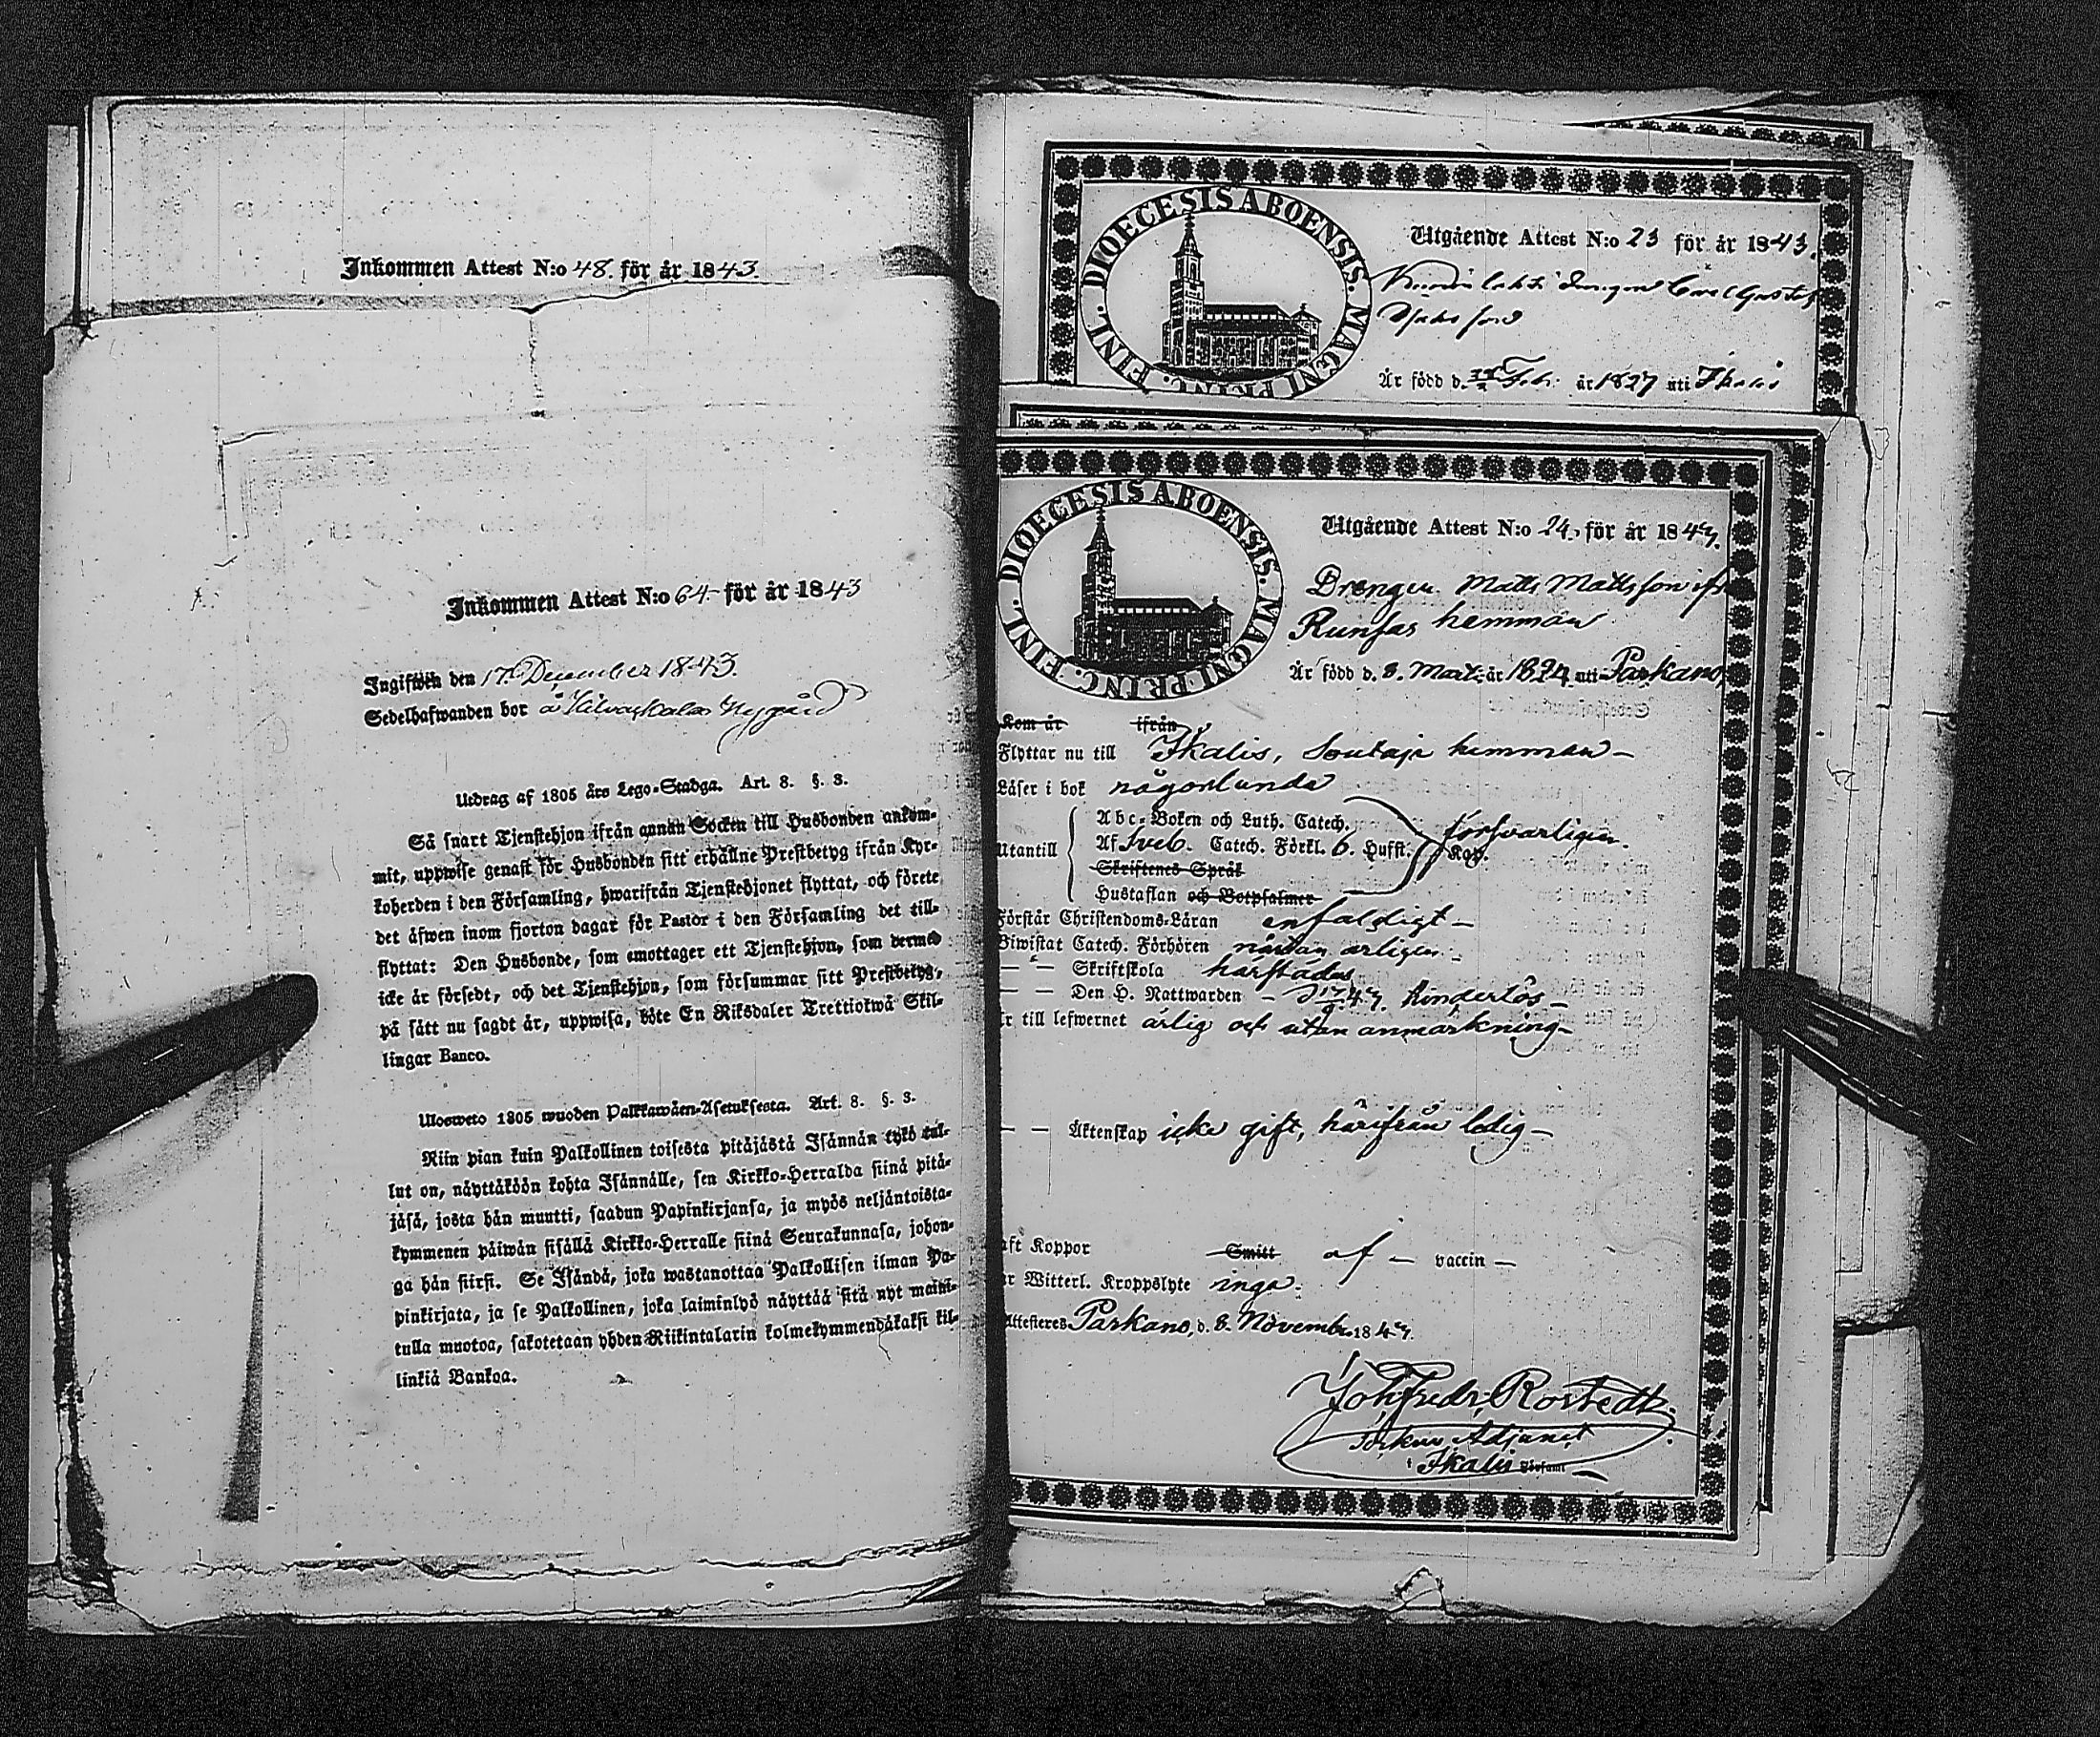 Inkommen Attest N:o 48. för år 1843.
Inkommen Attest N:o 64 för år 1843
Ingifwen den 17. December 1843.
Sedelhafwanden bor å Kilvaskala Nygård
Utdrag af 1805 års Lego-Stadga. Art. 8. §. 3.
Så snart Tjenstehjon ifrån annan Socken till Husbonden ankom-
mit, uppwise genast för Husbonden sitt erhållne Prestbetyg ifrån Kyr-
koherden i den Församling, hwarifrån Tjenstehjonet flyttat, och förete
det äfwen inom fjorton dagar för Pastor i den Församling det till-
flyttat: Den Husbonde, som emottager ett Tjenstehjon, som dermed
icke är försedt, och det Tjenstehjon, som försummar sitt Prestbetyg,
på sätt nu sagdt är, uppwisa, böte En Riksdaler Trettiotwå Skil-
lingar Banco.
Ulosweto 1805 wuoden Palkkawäen-Asetuksesta. Art. 8. §. 3.
Niin pian kuin Palkollinen toisesta pitäjästä Isännän tykö tul-
lut on, näyttäköön kohta Isännälle, sen Kirkko-Herralda siinä pitä-
jäsä, josta hän muutti, saadun Papinkirjansa, ja myös neljäntoista-
kymmenen päiwän sisällä Kirkko-Herralle siinä Seurakunnasa, johon-
ga hän siirsi. Se Isändä, joka wastanottaa Palkollisen ilman Pa-
pinkirjata, ja se Palkollinen, joka laiminlyö näyttää sitä nyt maini-
tulla muotoa, sakotetaan yhden Riikintalarin kolmekymmendäkaksi kil-
linkiä Bankoa.
DIOECESIS ABOENSIS. MAGNI PRINC. FINL.
Utgående Attest N:o 23 för år 1843.
Carl Gustaf
Är född d. Feb. år 1827 uti Ikalis
DIOECESIS ABOENSIS. MAGNI PRINC. FINL.
Utgående Attest N:o 24. för år 1843.
Drengen Matts Mattsson ifr
Runsas hemman
Är född d. 8. Mart. år 1824 uti Parkano,
Kom år ifrån
Flyttar nu till Ikalis, hemman —
Läser i bok någorlunda
Abc-Boken och Luth. Catech.
Utantill Af Sveb. Catech. Förkl. 6. Hufst. Kap. försvarligen.
Skriftenes Språk
Hustaflan och Botpsalmer
Förstår Christendoms-Läran enfaldigt —
Biwistat Catech. Förhören nästan årligen.
— — Skriftskola härstädes
— — Den H. Nattwarden — d 17/9 43. hinderlös —
är till lefwernet ärlig och utan anmärkning —
— — Äktenskap icke gift, härifrån ledig —
aft Koppor Smitt af — vaccin —
ar Witterl. Kroppslyte inga.
Attesteres Parkano, d. 8. Novemb. 1843.
Joh. Fredr. Rostedt.
Sockne Adjunct
i Ikalis Församl —